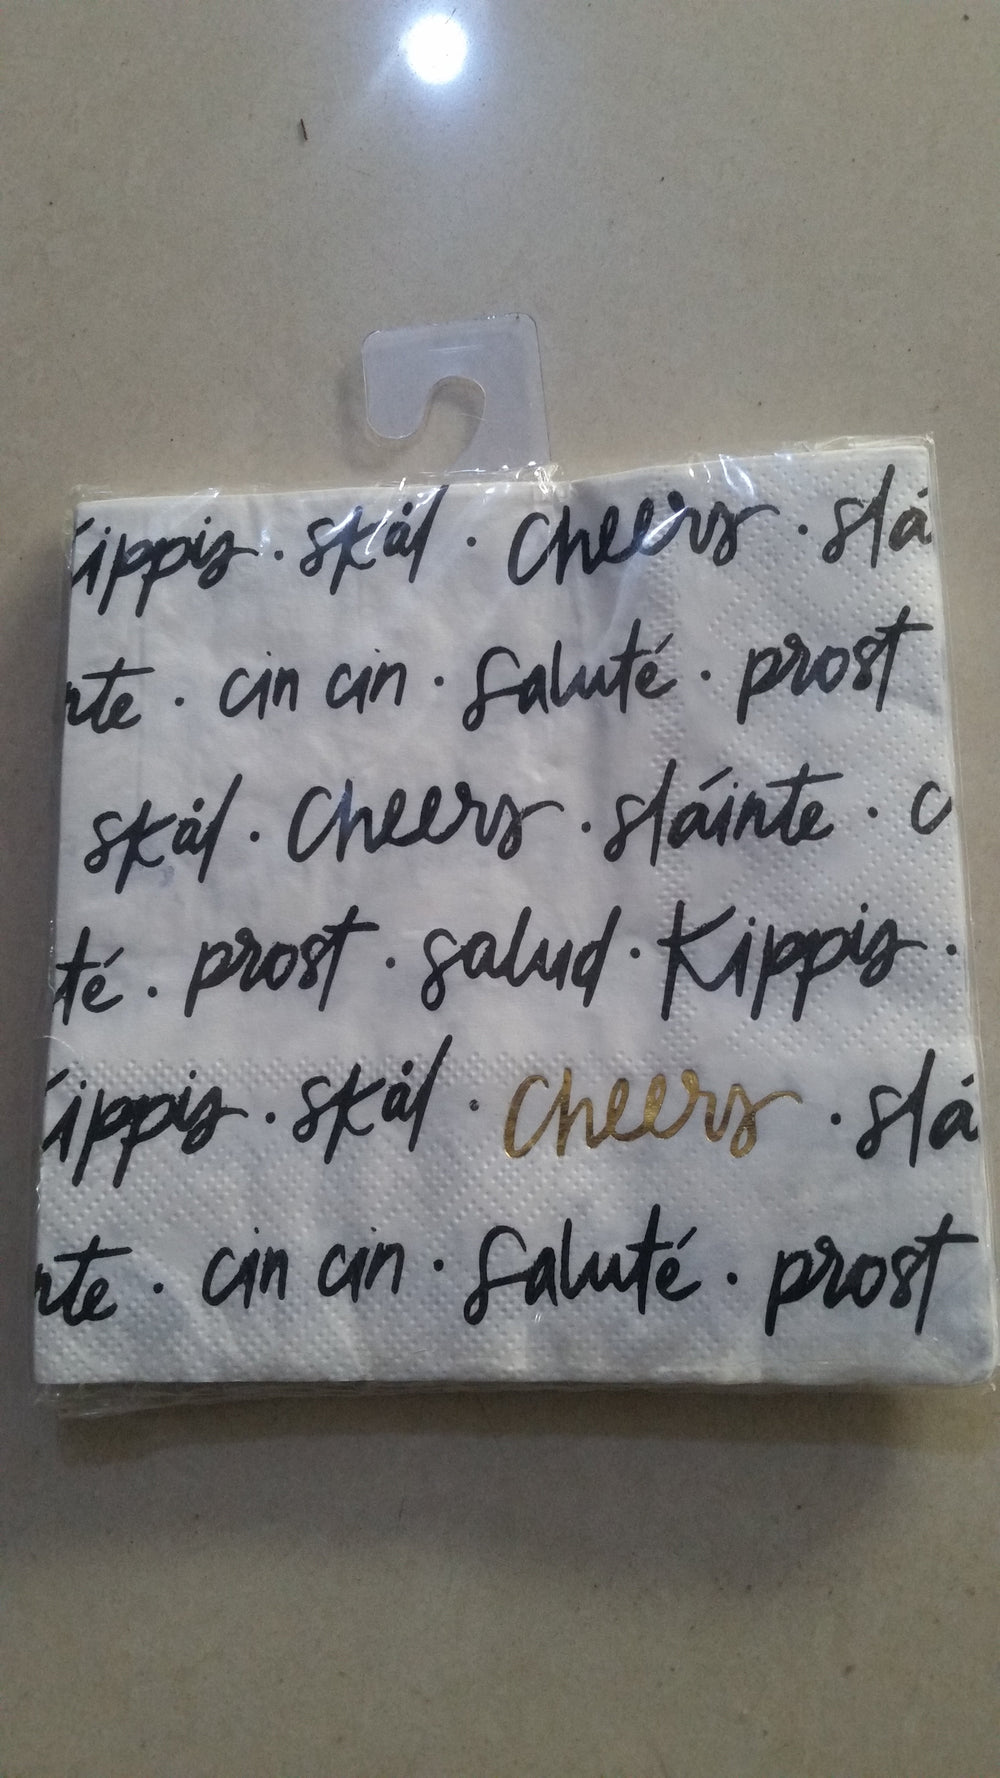 Kippis · skål · cheers · slá
rte · cin cin · saluté · prost
skål · cheers · sláinte · c
té · prost · salud · Kippis ·
Kippis · skål · cheers · slá
rte · cin cin · saluté · prost